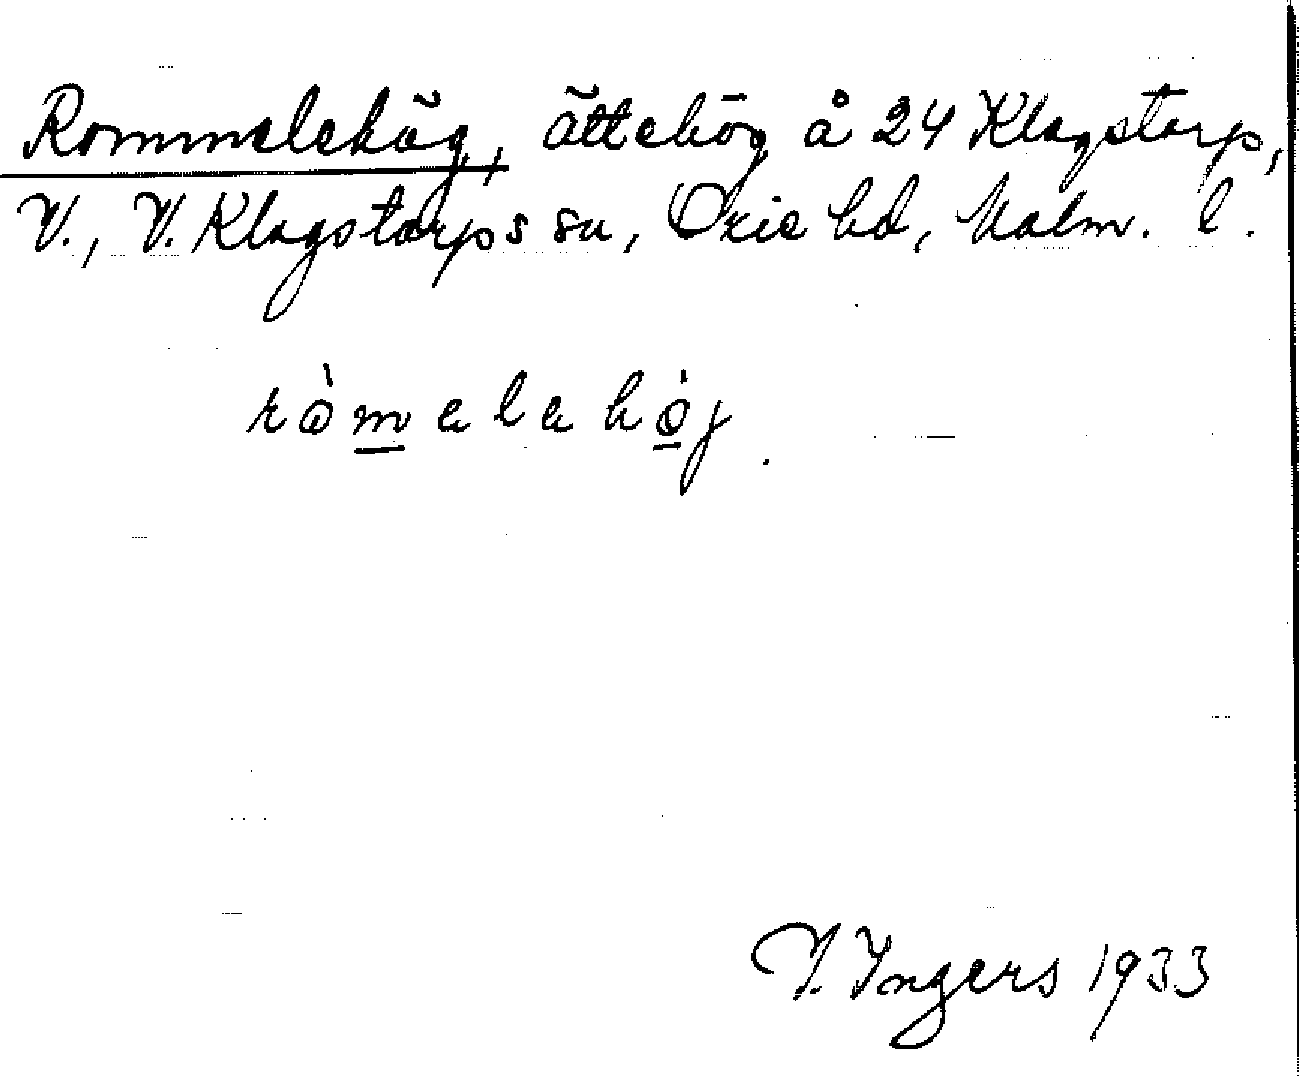 Rommelehög, ättehög å 24 Klagstorp,
V., V. Klagstorps sn, Oxie hd, Malm. l.
ròmelehö̀j.
I. Ingers 1933